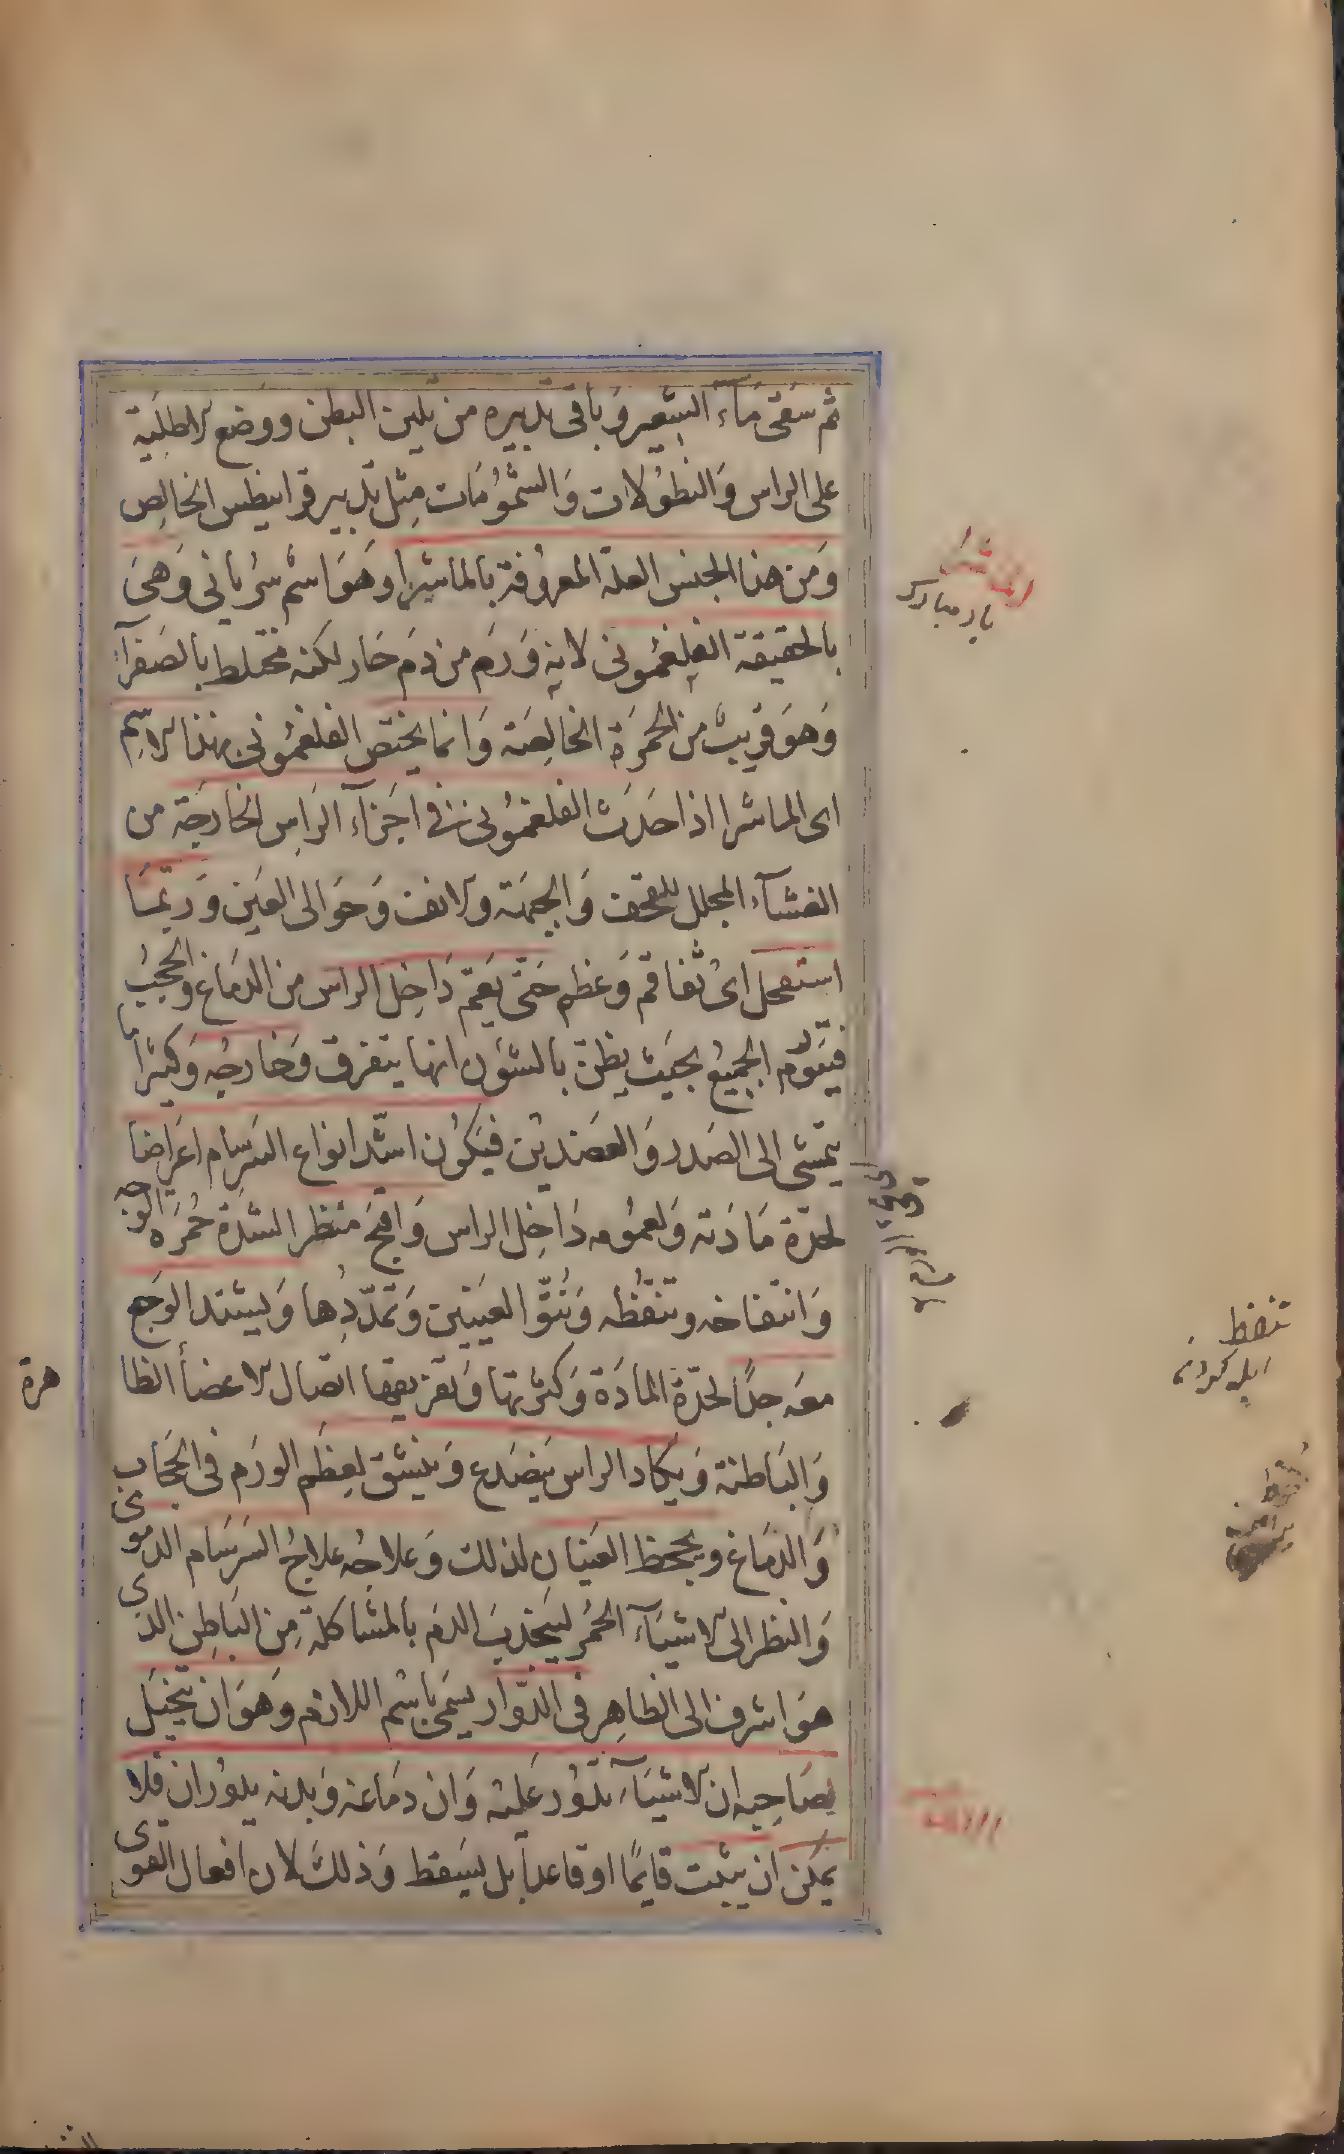 ثم سَقى مَاء الشعير وَباقى تدبيره من تليين البطن ووضع الاطلِيَة
على الراس وَالنطوُلات وَالشمُوُمَات مِثل تدبير قرانيطس الخالِص
وَمن هذا الجنس العلة المعرُوفة بالماشرا وهوَ اسْم سرُياني وَهىَ
بالحقيقة الفلغمُوني لانه وَرَم من دَم حَار لكنه مختلط بالصَفرآء
وَهوَ قريبٌ من الحُمرَة الخالِصَة وَانما يختص الفلغمُوني بهذا الاسِم
اى الماشرا اذا حَدَث الفلغمُوني في اجَزآء الرَاسِ الخارجَة من
الغشآء المجلل للقحف وَالجبهَة والانف وَحوَالى العَين وَربّمَا
استفحل اىْ تفاقم وَعظم حَتّى يَعمّ دَاخِل الراس من الدمَاغ والحُجبُ
فيتورّم الجميعُ بحيَث يظنّ بالشؤن انها يتفرق وَخارجُه وَكيثراً
يتمشى الى الصَدر وَالعضديْن فيكوُن اشدّ انواع السَرسام اعَراضا
لحدّة مَادَته وَلعموُمه دَاخِل الراس وَاقبحَ منظر الشدَة حُمَرَة الوَجه
وَانتفاخه وتنفّطه وَنتُوّ العيَنَين وَتمدّدِها وَيشتد الوَجع
معَه جدا لحدّة المادَة وَكثرتها وَتفريقها اتصال الاعضأ الظا
هرة
وَالبَاطنة وَيكاد الراس يَنصَدع وَينشق لِعِظَم الورَم فى الحجَاب
وَالدمَاغ ويجحظ العَينان لذلك وَعلاجُه علاجُ السَرسَام الدموى
وَالنظر الى الاشيَآء الحمُر ليَنجذبَ الدَم بالمشاكلة مِن البَاطِن الذى
هوَ اشرف الى الظاهِر فى الدّوار يسَمى باسْم اللازم وَهوَ ان يَتخيَل
لِصَاحِبه ان الاشيَآء تدوُر عَليَه وَان دمَاغه وَبدنه يدوُران فلا
يمكن ان يثبت قايمًا اوقاعداً بل يَسَقط وَذلك لان افعال القوى
الماشرا
باد مبارك
تنفط
ابله كردن